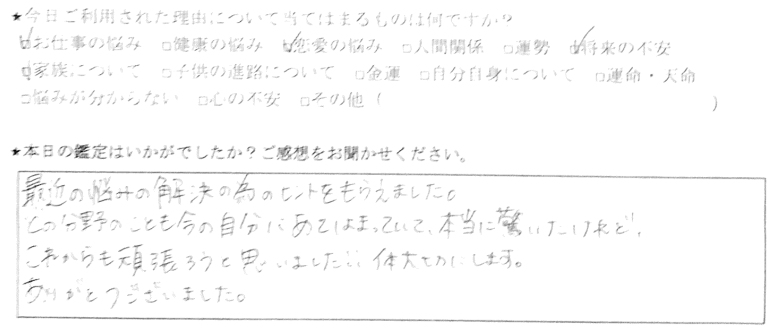 ★今日ご利用された理由について当てはまるものは何ですか？
☑お仕事の悩み □健康の悩み ☑恋愛の悩み □人間関係 □運勢 ☑将来の不安
☑家族について □子供の進路について □金運 □自分自身について □運命・天命
□悩みが分からない □心の不安 □その他（ ）
★本日の鑑定はいかがでしたか？ご感想をお聞かせください。
最近の悩みの解決の為のヒントをもらえました。
どの分野のことも今の自分にあてはまっていて、本当に驚いたけれど、
これからも頑張ろうと思いました!! 体大切にします。
ありがとうございました。